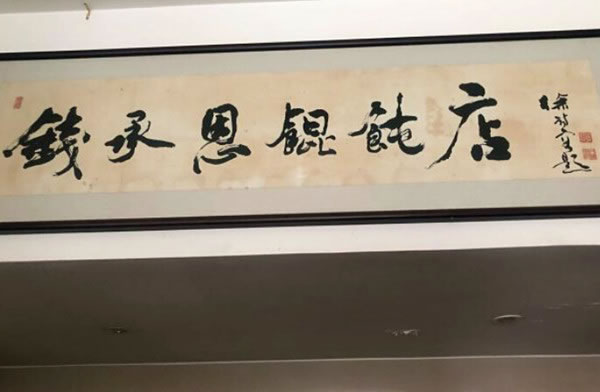 錢承恩餛飩店
徐 題